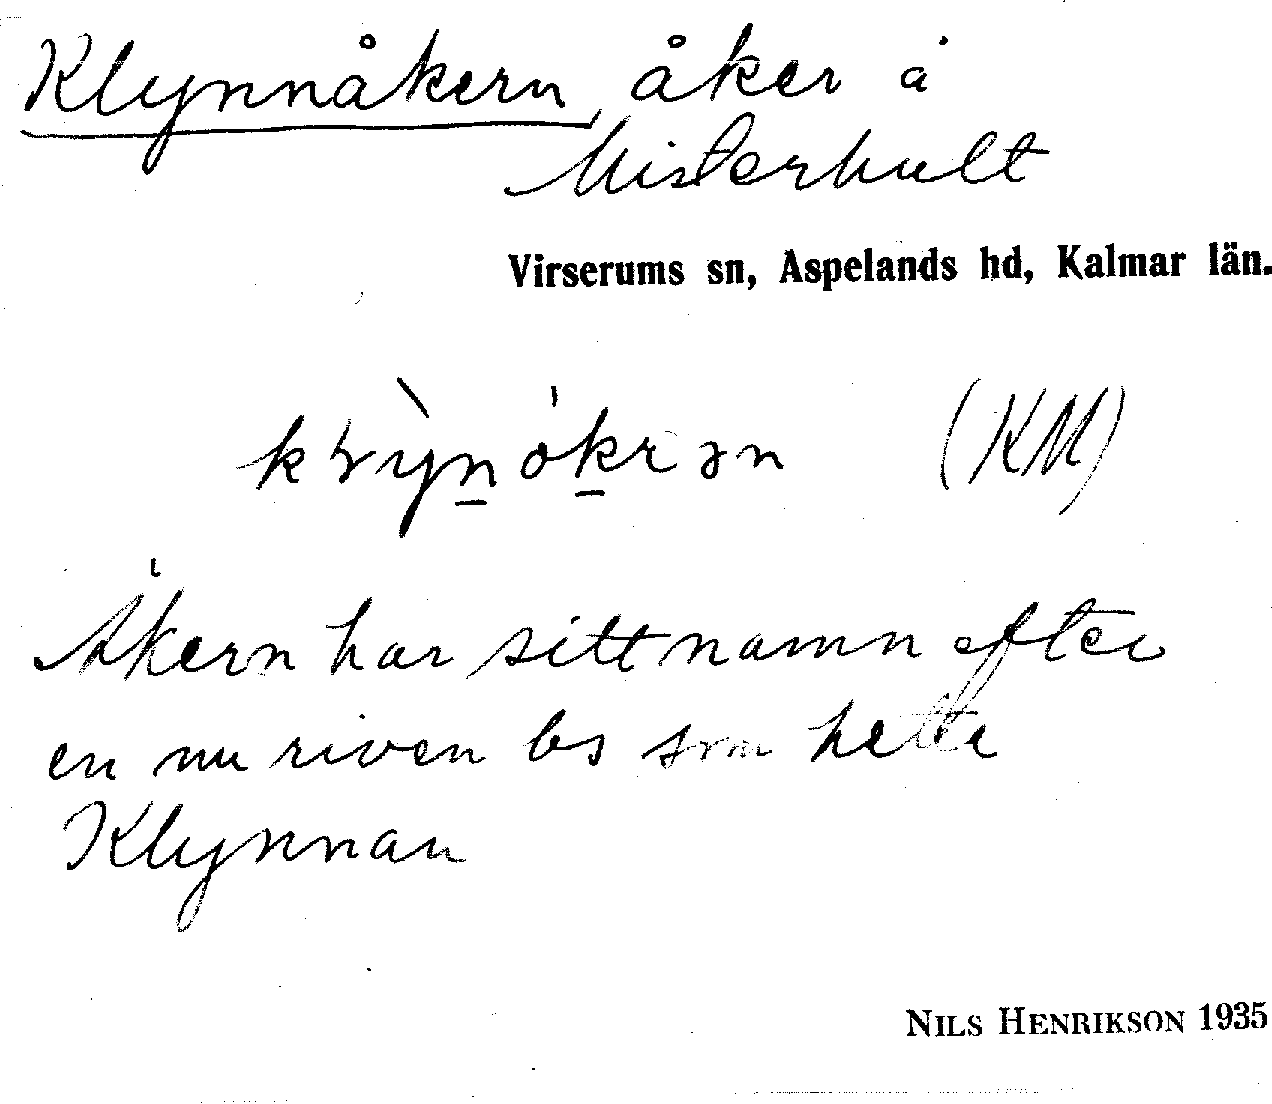 Klynnåkern, åker å
Misterhult
Virserums sn, Aspelands hd, Kalmar län.
(KM)
Åkern har sitt namn efter
en nu riven bs som hette
Klynnan
NILS HENRIKSON 1935